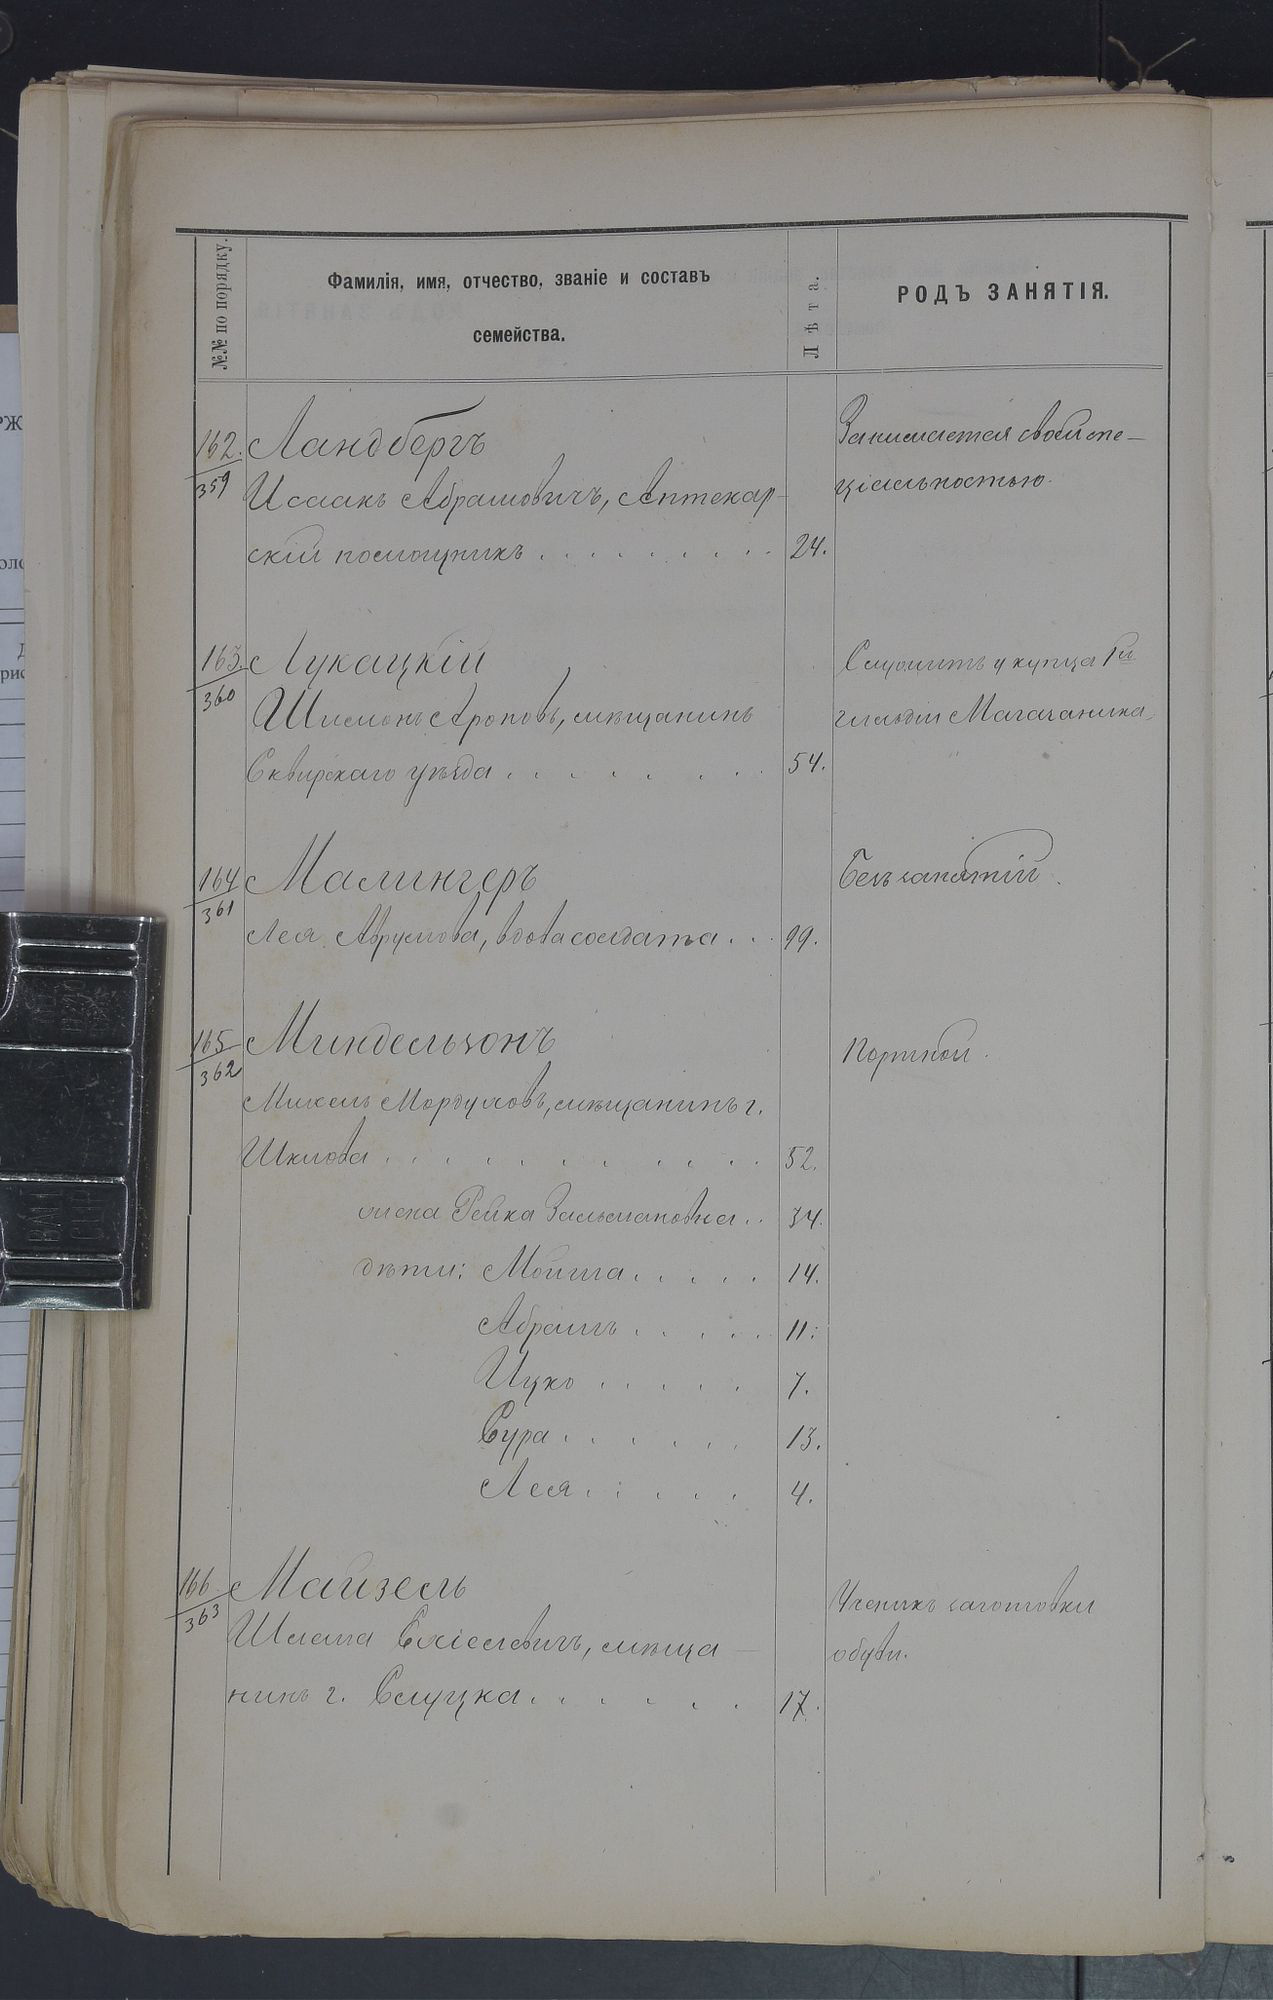 №№ по порядку.
Фамилія, имя, отчество, званіе и составъ
семейства.
Лѣта.
РОДЪ ЗАНЯТІЯ.
162. Ландбергъ
359
Исаакъ Абрамовичъ, Аптекар-
скій помощникъ . . . . . . . . . 24.
Занимается своей спе-
ціальностью.
163. Лукацкій
360
Шимонъ Ароновъ, мѣщанинъ
Сквирскаго уѣзда . . . . . . . 54.
Служитъ у купца 1й
гильдіи
164 Малингеръ
361
Лея Аврумова, вдова солдата . . . 99.
Безъ занятій.
165 Миндельзонъ
362
Михель Мордуховъ, мѣщанинъ г.
Шклова . . . . . . . . . . . . 52.
Портной.
жена Рейка Зальмановна . . 34.
дѣти: Мойша . . . . . 14.
Абрамъ . . . . . 11.
Ицко . . . . . 7.
Сура . . . . . . 13.
Лея . . . . . . 4.
166 Майзель
363
Шлема Ехіелевичъ, мѣща-
нинъ г. Слуцка . . . . . . . 17.
Ученикъ заготовки
обуви.